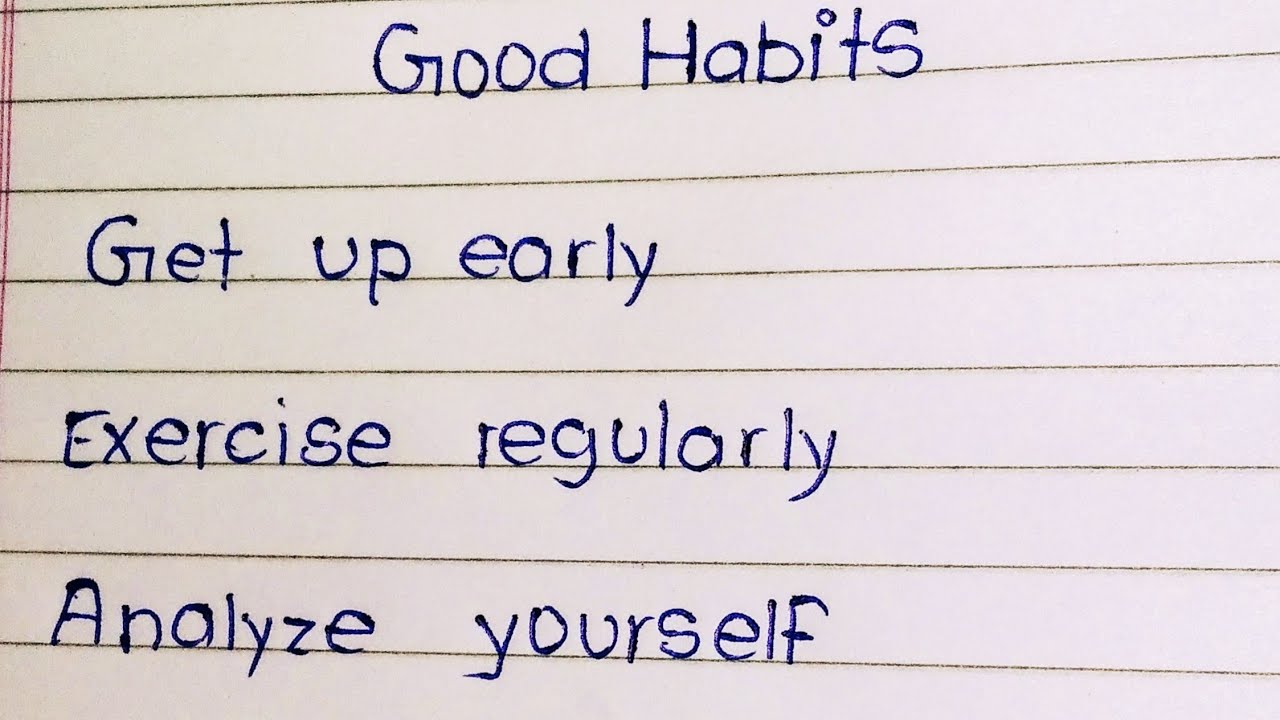 Good Habits
Get up early
Exercise regularly
Analyze yourself